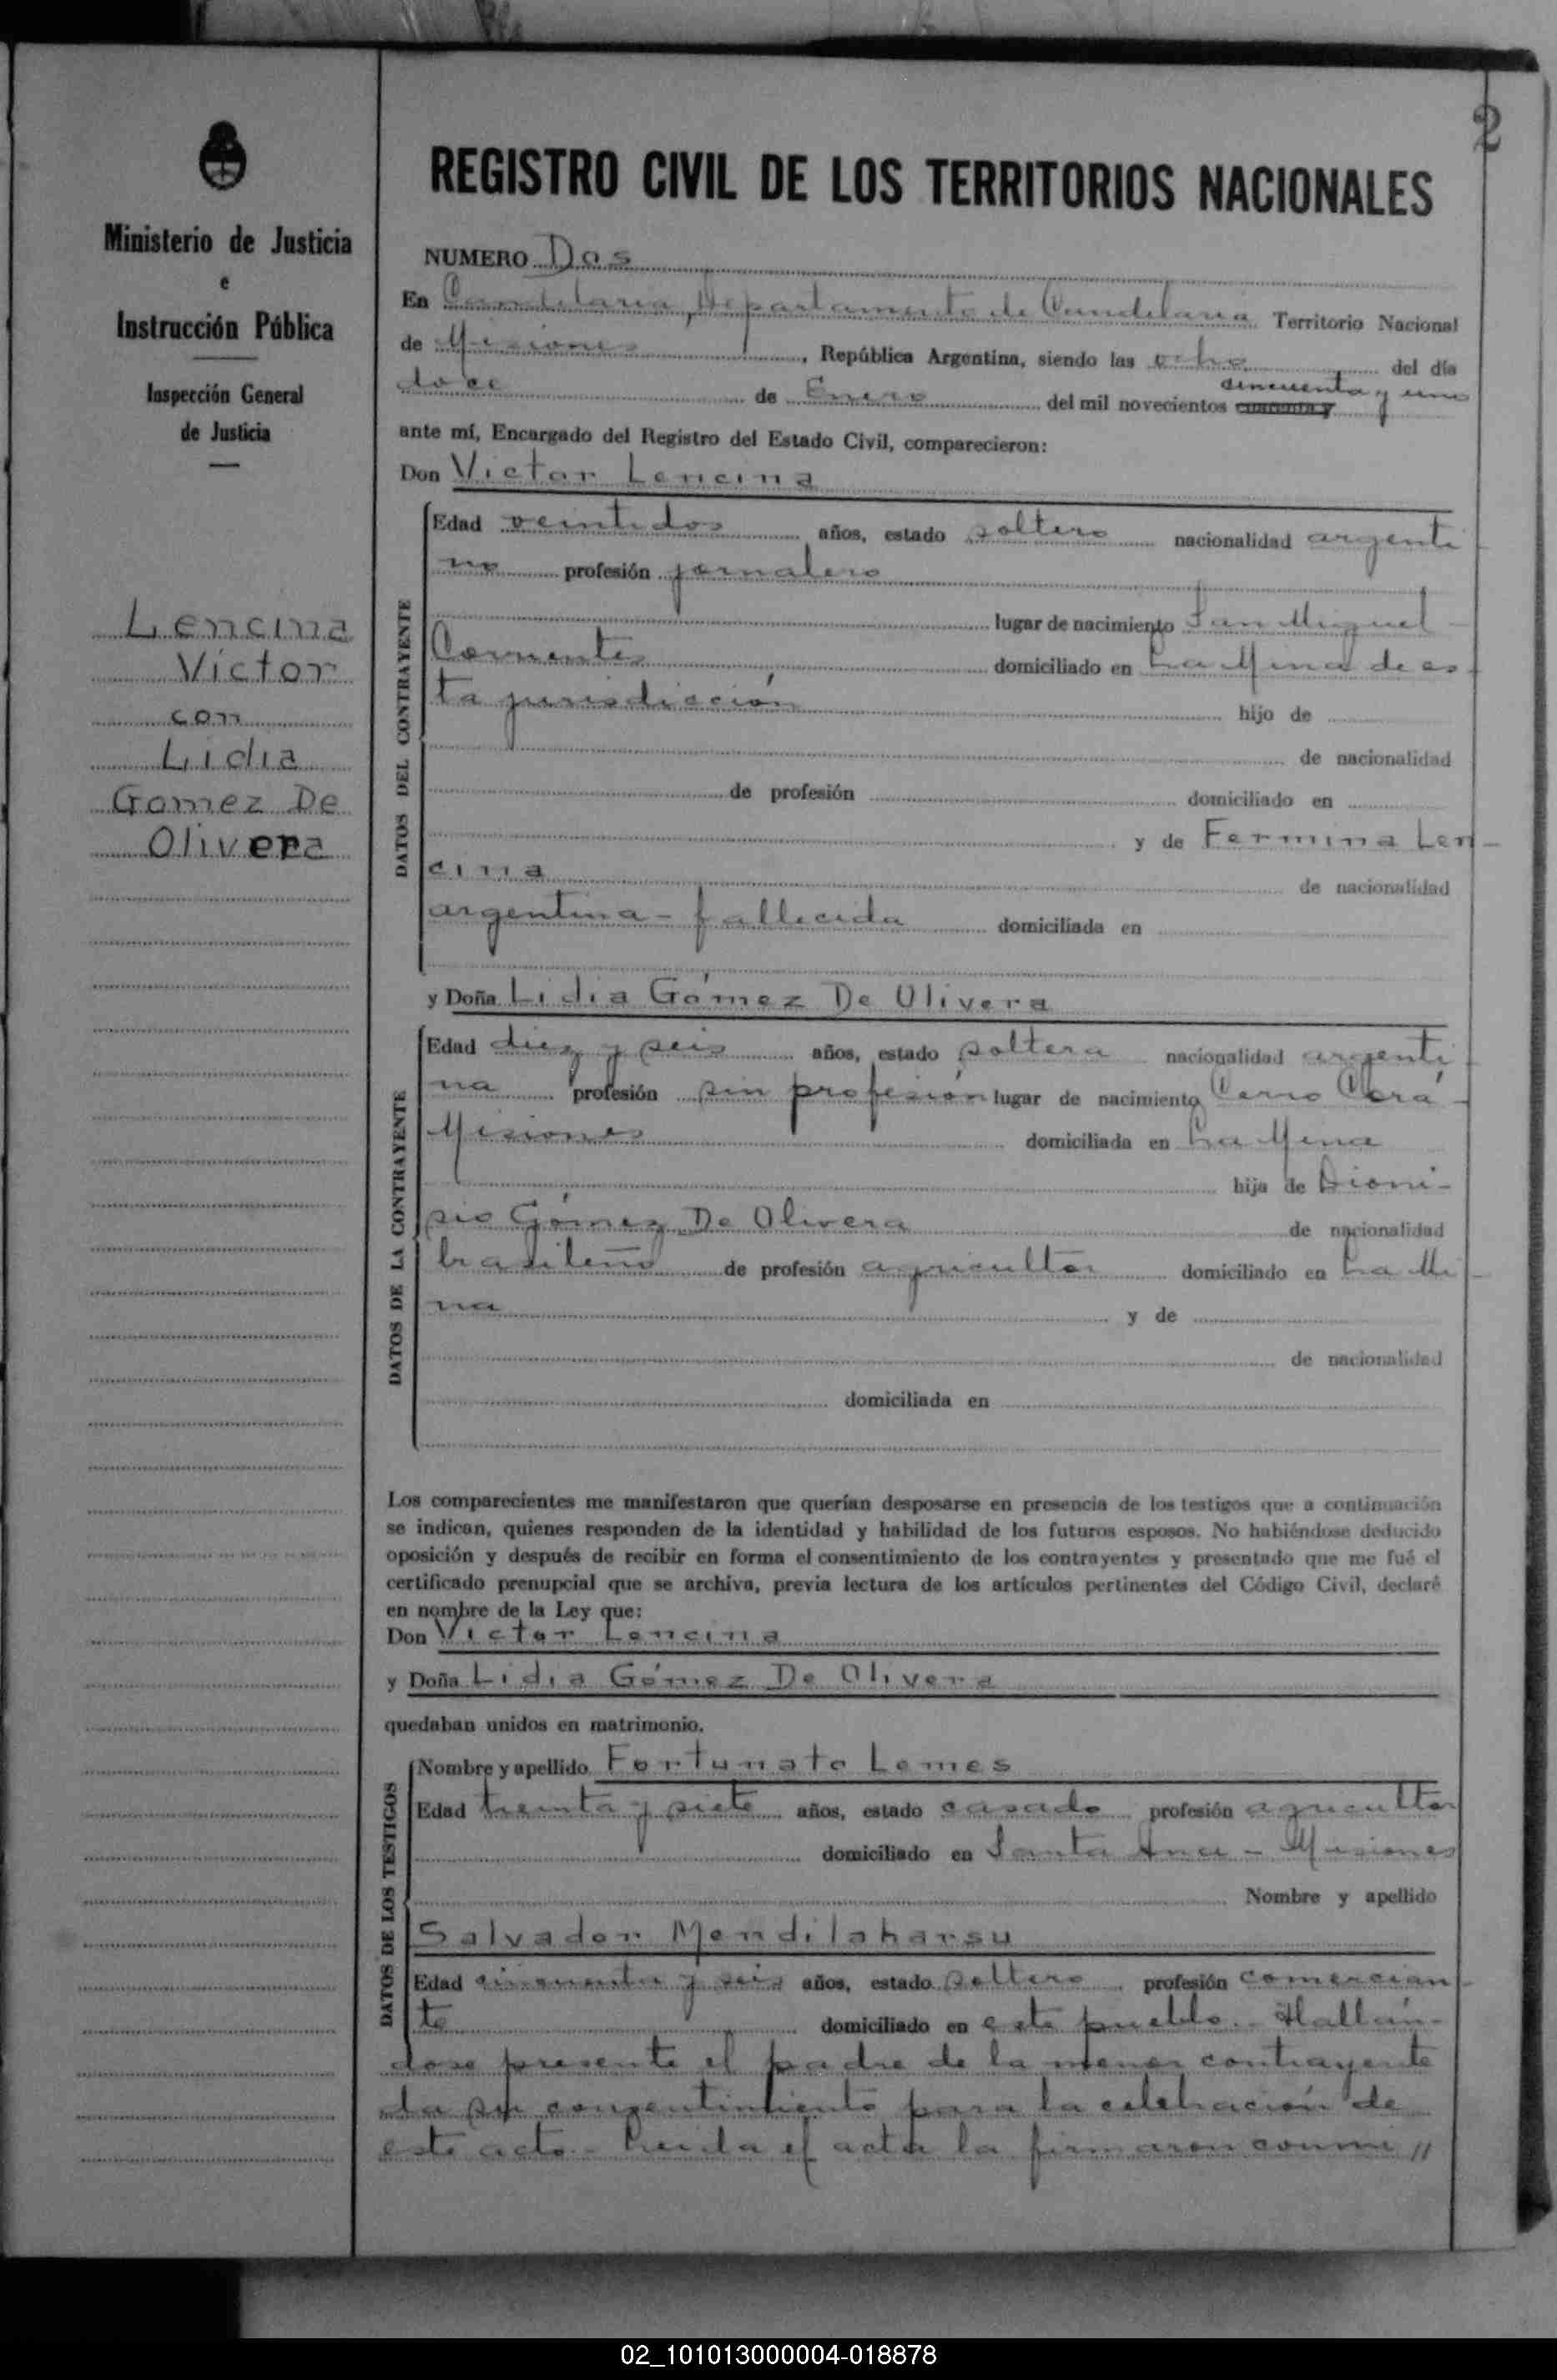 2
Ministerio de Justicia
e
Instrucción Pública
Inspección General
de Justicia
Lencina
Víctor
con
Lidia
Gomez De
Olivera
REGISTRO CIVIL DE LOS TERRITORIOS NACIONALES
NUMERO Dos
En Candelaria, Departamento de Candelaria Territorio Nacional
de Misiones, República Argentina, siendo las ocho del día
doce de Enero del mil novecientos cuarenta y cincuenta y uno
ante mí, Encargado del Registro del Estado Civil, comparecieron:
Don Victor Lencina
DATOS DEL CONTRAYENTE
Edad veintidos años, estado soltero nacionalidad argenti
no profesión jornalero
lugar de nacimiento San Miguel -
Corrientes domiciliado en La Mina de es-
ta jurisdicción hijo de
de nacionalidad
de profesión domiciliado en
y de Fermina Len-
cina de nacionalidad
argentina - fallecida domiciliada en
y Doña Lidia Gómez De Olivera
DATOS DE LA CONTRAYENTE
Edad diez y seis años, estado soltera nacionalidad argenti-
na profesión sin profesión lugar de nacimiento Cerro Corá -
Misiones domiciliada en La Mina
hija de Dioni-
sio Gómez De Olivera de nacionalidad
brasileño de profesión agricultor domiciliado en La Mi-
na y de
de nacionalidad
domiciliada en
Los comparecientes me manifestaron que querían desposarse en presencia de los testigos que a continuación
se indican, quienes responden de la identidad y habilidad de los futuros esposos. No habiéndose deducido
oposición y después de recibir en forma el consentimiento de los contrayentes y presentado que me fué el
certificado prenupcial que se archiva, previa lectura de los artículos pertinentes del Código Civil, declaré
en nombre de la Ley que:
Don Victor Lencina
y Doña Lidia Gómez De Olivera
quedaban unidos en matrimonio.
DATOS DE LOS TESTIGOS
Nombre y apellido Fortunato Lemes
Edad treinta y siete años, estado casado profesión agricultor
domiciliado en Santa Ana - Misiones
Nombre y apellido
Salvador Mendilaharsu
Edad cincuenta y seis años, estado soltero profesión comercian-
te domiciliado en este pueblo.- Hallán-
dose presente el padre de la menor contrayente
da su consentimiento para la celebración de
este acto.- Leida el acta la firmaron conmi //
02_101013000004-018878